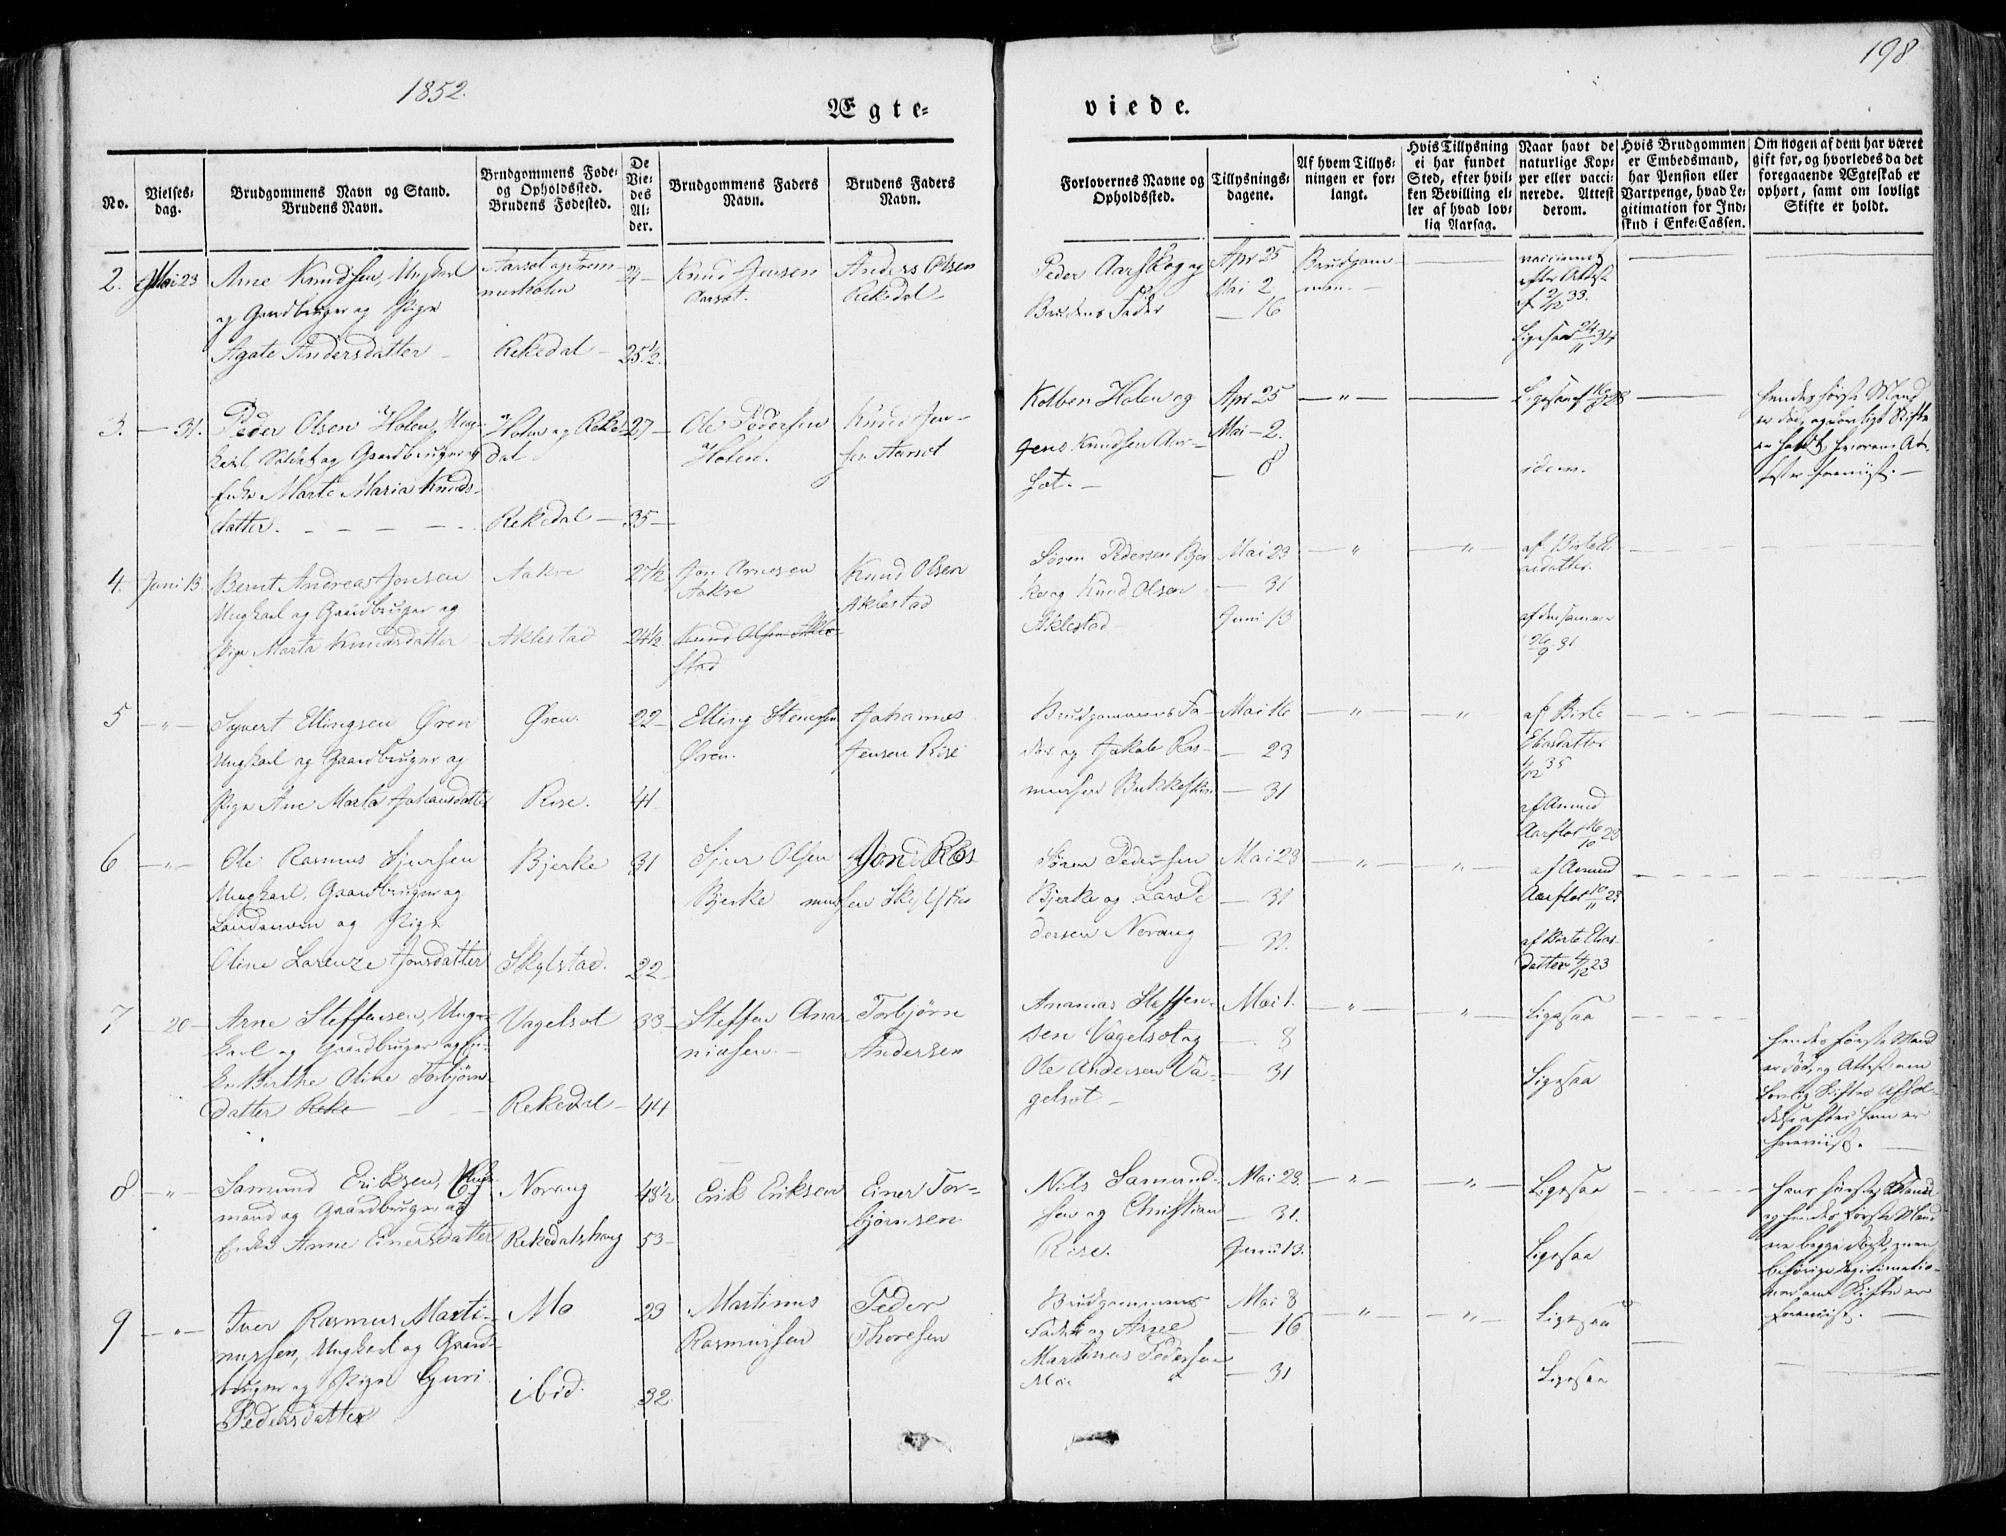 1852.
198
Ægte=
viede.
No.
Vielses=
dag.
Brudgommens Navn og Stand.
Brudens Navn.
Brudgommens Føde=
og Opholdssted.
Brudens Fødested.
De
Vie=
des
Al=
der.
Brudgommens Faders
Navn.
Brudens Faders
Navn.
Forlovernes Navne og
Opholdssted.
Tillysnings=
dagene.
Af hvem Tillys=
ningen er for=
langt.
Hvis Tillysning
ei har fundet
Sted, efter hvil=
ken Bevilling el=
ler af hvad lov=
lig Aarsag.
Naar havt de
naturlige Kop=
per eller vacci=
nerede. Attest
derom.
Hvis Brudgommen
er Embedsmand,
har Pension eller
Vartpenge, hvad Le=
gitimation for Ind=
skud i Enke=Cassen.
Om nogen af dem har været
gift før, og hvorledes da det
foregaaende Ægteskab er
ophørt, samt om lovligt
Skifte er holdt.
2. Mai 23
Arne Knudsen, Ungkarl
og Gaardbruger og Pige
Agate Andersdatter
Rekedal
24
25½
Knud Jensen
Aarset.
Anders Olsen
Rekedal
Peder Aarskog og
Brudens Fader
Apr 25
Mai 2
— 16
Brudgom=
men.
vaccinered
efter Attest
Ligesaa 24/11 34
3. — 31.
Peder Olsen Holen, Ung=
karl, Soldat og Gaardbruger og
Enke Marte Maria Knuds=
datter.
Holen og Reke=
dal
Rekedal
27
35
Ole Pedersen
Holen.
Knud Jen=
sen Aarset
Kolben Holen og
Jens Knudsen Aar=
set.
Apr 25
Mai — 2.
— 8
— " —
idem.
Hendes første Mand
er død
4. Juni 13
Bernt Andreas Jonsen
Ungkarl og Gaardbruger og
Pige Marta Knudsdatter
Aakre
Aklestad
27½
24½
Jon Arnesen
Aakre
Knud Olsen Akle=
stad
Knud Olsen
Aklestad
Søren Pedersen Bjer
ke og Knud Olsen
Aklestad
Mai 23
— 31
Juni 13
— " —
— " —
af densamme
26/9 31
5 — " —
Syvert Ellingsen Øren
Ungkarl og Gaardbruger og
Pige Ane Marta Johansdatter
Øren.
Rise.
22
41
Elling Stensen
Øren.
Johannes
Jensen Rise
Brudgommens Fa=
der og Jakob Ras=
mussen
Mai 16
— 23
— 31
— " —
— " —
af Birte
Eliasdatter
4/12 35
af Asmund
Aarflot 16/10 23
6 — " —
Ole Rasmus Sjursen
Ungkarl, Gaardbruger og
Landsmon og Pige
Oline Lorenze Jonsdatter
Bjerke
Skylstad.
31
22
Sjur Olsen
Bjerke
Jon Ras
mussen Skylstad
Søren Pedersen
Bjerke og Lars P
dersen Norang
Mai 23
— 31
— " —
— " —
af Asmund
Aarflot 10/11 23
af Birte Elias=
datter 4/12 23
7 — 20 —
Arne Steffensen, Ung=
karl og Gaardbruger og En=
ke Berthe Oline Torbjørn=
datter Reke
Vagelsot
Rekedal
33
44
Steffen Ana=
niasen.
Torbjørn
Andersen
Ananias Steffen=
sen Vagelsot og
Ole Andersen Va=
gelsot
Mai 1.
— 8
— 31
— " —
— " —
Ligesaa
Ligesaa
Hendes første Mand
er død, og Attest om
8 — " —
Samund Eriksen, Enke=
mand og Gaardbruger og
Enke Anne Einersdatter
Norang
Rekedalshaug
48½
53
Erik Eriksen
Einer Tor=
bjørnsen
Nils Samund=
sen og Christian
Rise.
Mai 23.
— 31.
Juni 13.
— " —
— " —
Ligesaa
Ligesaa
og hendes første Mand
ere begge døde, men
9 — " —
Iver Rasmus Marti=
nussen, Ungkarl og Gaard=
bruger og Pige Guri
Pedersdatter
Mo
ibid.
23
32
Martinus
Rasmussen
Peder
Thoresen
Brudgommens
Fader og Arne
Martinus Pedersen
Moe
Mai 8
— 16
— 31
— " —
— " —
Ligesaa
Ligesaa